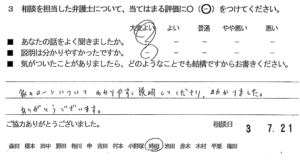 3 相談を担当した弁護士について、当てはまる評価に○(⊖)をつけてください。
大変よい よい 普通 やや悪い 悪い
■ あなたの話をよく聞きましたか。
■ 説明は分かりやすかったですか。
■ 気がついたことがありましたら、どのようなことでも結構ですからお書きください。
私のローンについて わかりやすく説明してくださり、助かりました。
ありがとうございます。
ご協力ありがとうございました。 相談日 3 7.21